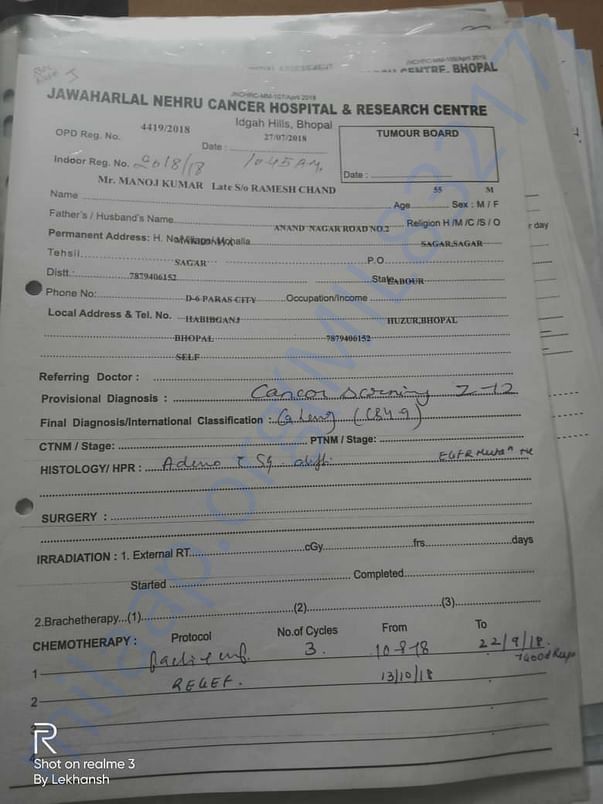 JNCHRC-MM-107/April 2018
CENTRE, BHOPAL
JNCHRC-MM-107/April 2018
JAWAHARLAL NEHRU CANCER HOSPITAL & RESEARCH CENTRE
Idgah Hills, Bhopal
OPD Reg. No. 4419/2018 Date : 27/07/2018
TUMOUR BOARD
Date :
Indoor Reg. No. 2018/18 10.45 AM.
Mr. MANOJ KUMAR Late S/o RAMESH CHAND 55 M
Name Age Sex : M / F
Father's / Husband's Name Religion H /M /C /S / O
ANAND NAGAR ROAD NO.2
Permanent Address: H. No SAGAR,SAGAR
Tehsil P.O.
SAGAR
Distt.: State
7879406152 LABOUR
Phone No: Occupation/Income
D-6 PARAS CITY
Local Address & Tel. No. HABIBGANJ HUZUR,BHOPAL
BHOPAL 7879406152
SELF
Referring Doctor :
Provisional Diagnosis : Cancer Z-12
Final Diagnosis/International Classification : Ca Lung
CTNM / Stage: PTNM / Stage:
HISTOLOGY/ HPR : Adeno EGFR
SURGERY :
IRRADIATION : 1. External RT cGy frs days
Started Completed
2.Brachetherapy...(1) (2) (3)
CHEMOTHERAPY : Protocol No.of Cycles From To
1 3. 10-8-18 22/9/18.
2 13/10/18
3
4
r day
Shot on realme 3
By Lekhansh
milaap.org/MIL832171